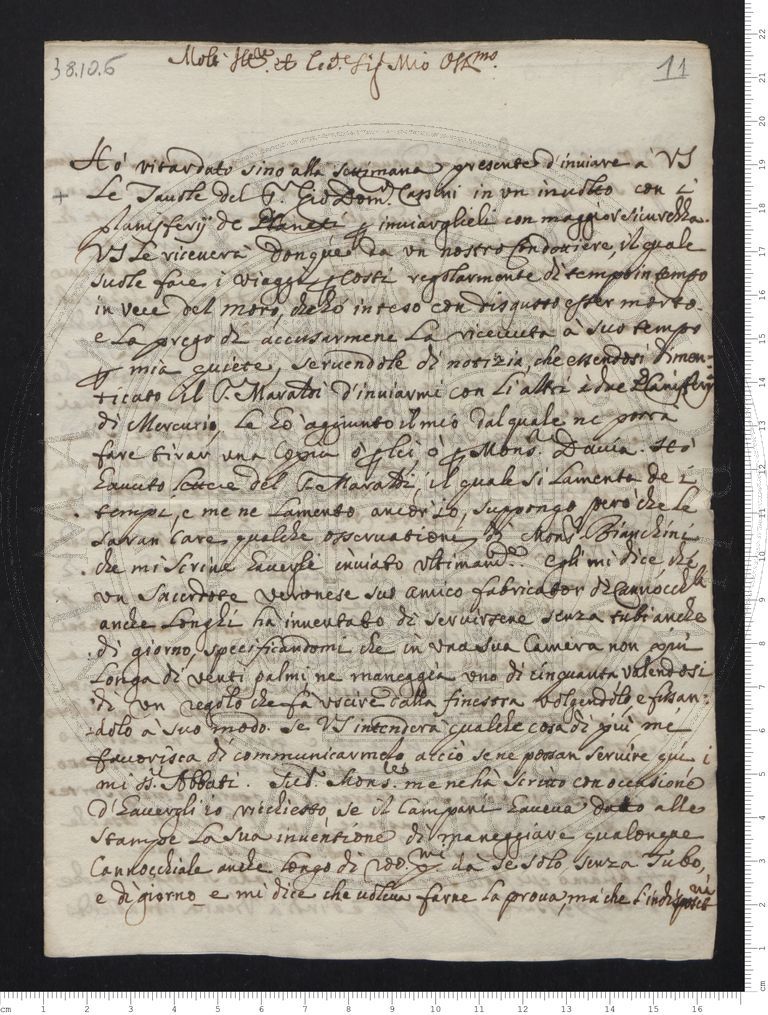 38.10.6
11
Molt' Ill.re et Ecc.te Sig.r Mio Oss.mo
Hò ritardato sino alla settimana presente d'inviare à VS
Le Tavole del S.r Gio Dom.co Cassini in un involto con i
planisferij de Pianeti p inviarglieli con maggior sicurezza.
VS le riceverà donque da un nostro Condottiere, il quale
suole fare i viaggi p costì regolarmente di tempo in tempo
in vece del moro, che hò inteso con disgusto esser morto.
e La prego di accusarmene La ricevuta à suo tempo
p mia quiete, servendole di notizia, che essendosi dimen-
ticato il S.r Maraldi d'inviarmi con li altri i due Planisferij
di Mercurio, Le hò aggiunto il mio dal quale ne potrà
fare tirar una copia ò p lei ò p Mons.r Davia. Hò
havuto lettere del S.r Maraldi, il quale si lamenta de i
tempi, e me ne lamento ancor io, suppongo però che le
saran care qualche osservatione di Mons.r Bianchini
che mi scrive haverli inviato ultimam.te Egli mi dice che
un Sacerdote Veronese suo amico fabricator di Cannocch.li
anche longhi hà inventato di servirsene senza tubi anche
di giorno, specificandomi che in una sua Camera non più
Longa di venti palmi ne maneggia uno di cinquanta valendosi
di un regolo che fà uscire dalla finestra volgendolo e fissan-
dolo à suo modo. Se VS intenderà qualche cosa di più me
favorisca di communicarmelo acciò se ne possan servire qui i
miei SS.ri Abbati. Sud.o Mons.r me ne hà scritto con occasione
d'haverli io richiesto, se il Campani haveva dato alle
stampe La sua inventione di maneggiare qualonque
Cannocchiale anche longo di 200 p.mi da se solo senza Tubo,
e di giorno e mi dice che voleva farne la prova, mà che l'indisposit